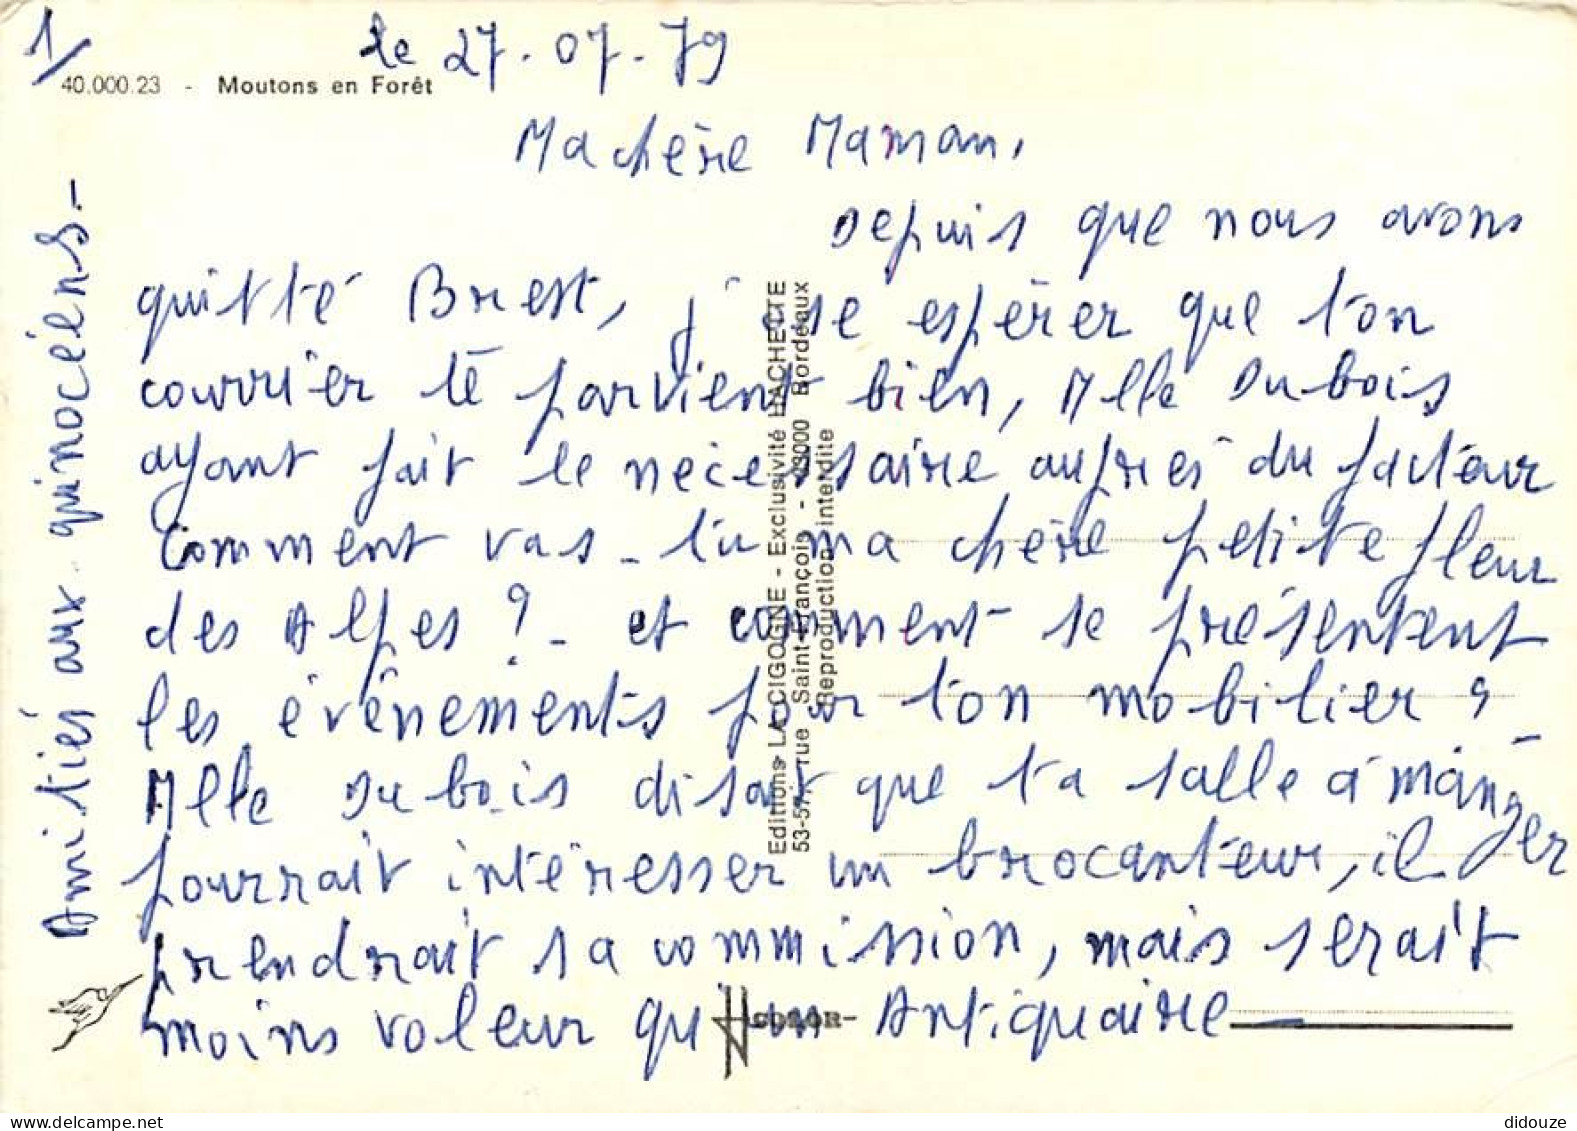 1/
le 27.07.79
40.000.23 - Moutons en Forêt
Ma chère Maman,
Depuis que nous avons
quitté Brest, j'ose espérer que ton
courrier te parvient bien, Mlle Dubois
ayant fait le nécessaire auprès du facteur
Comment vas-tu ma chère petite fleur
des Alpes ? - et comment se présentent
les évènements pour ton mobilier ?
Mlle Dubois disait que ta salle à manger
pourrait intéresser un brocanteur, il
prendrait sa commission, mais serait
moins voleur qu'un Antiquaire -
Amitiés aux quinocéens -
Editions LA CIGOGNE - Exclusivité HACHETTE
53-57, rue Saint-François - 33000 Bordeaux
Reproduction interdite
COLOR
didouze